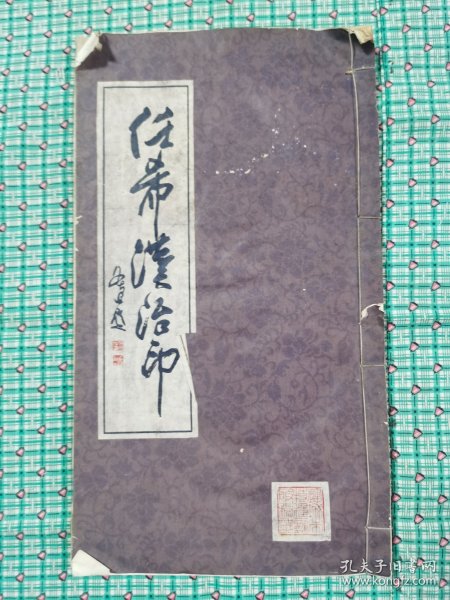 任希濮治印
孔夫子旧书网
www.kongfz.com